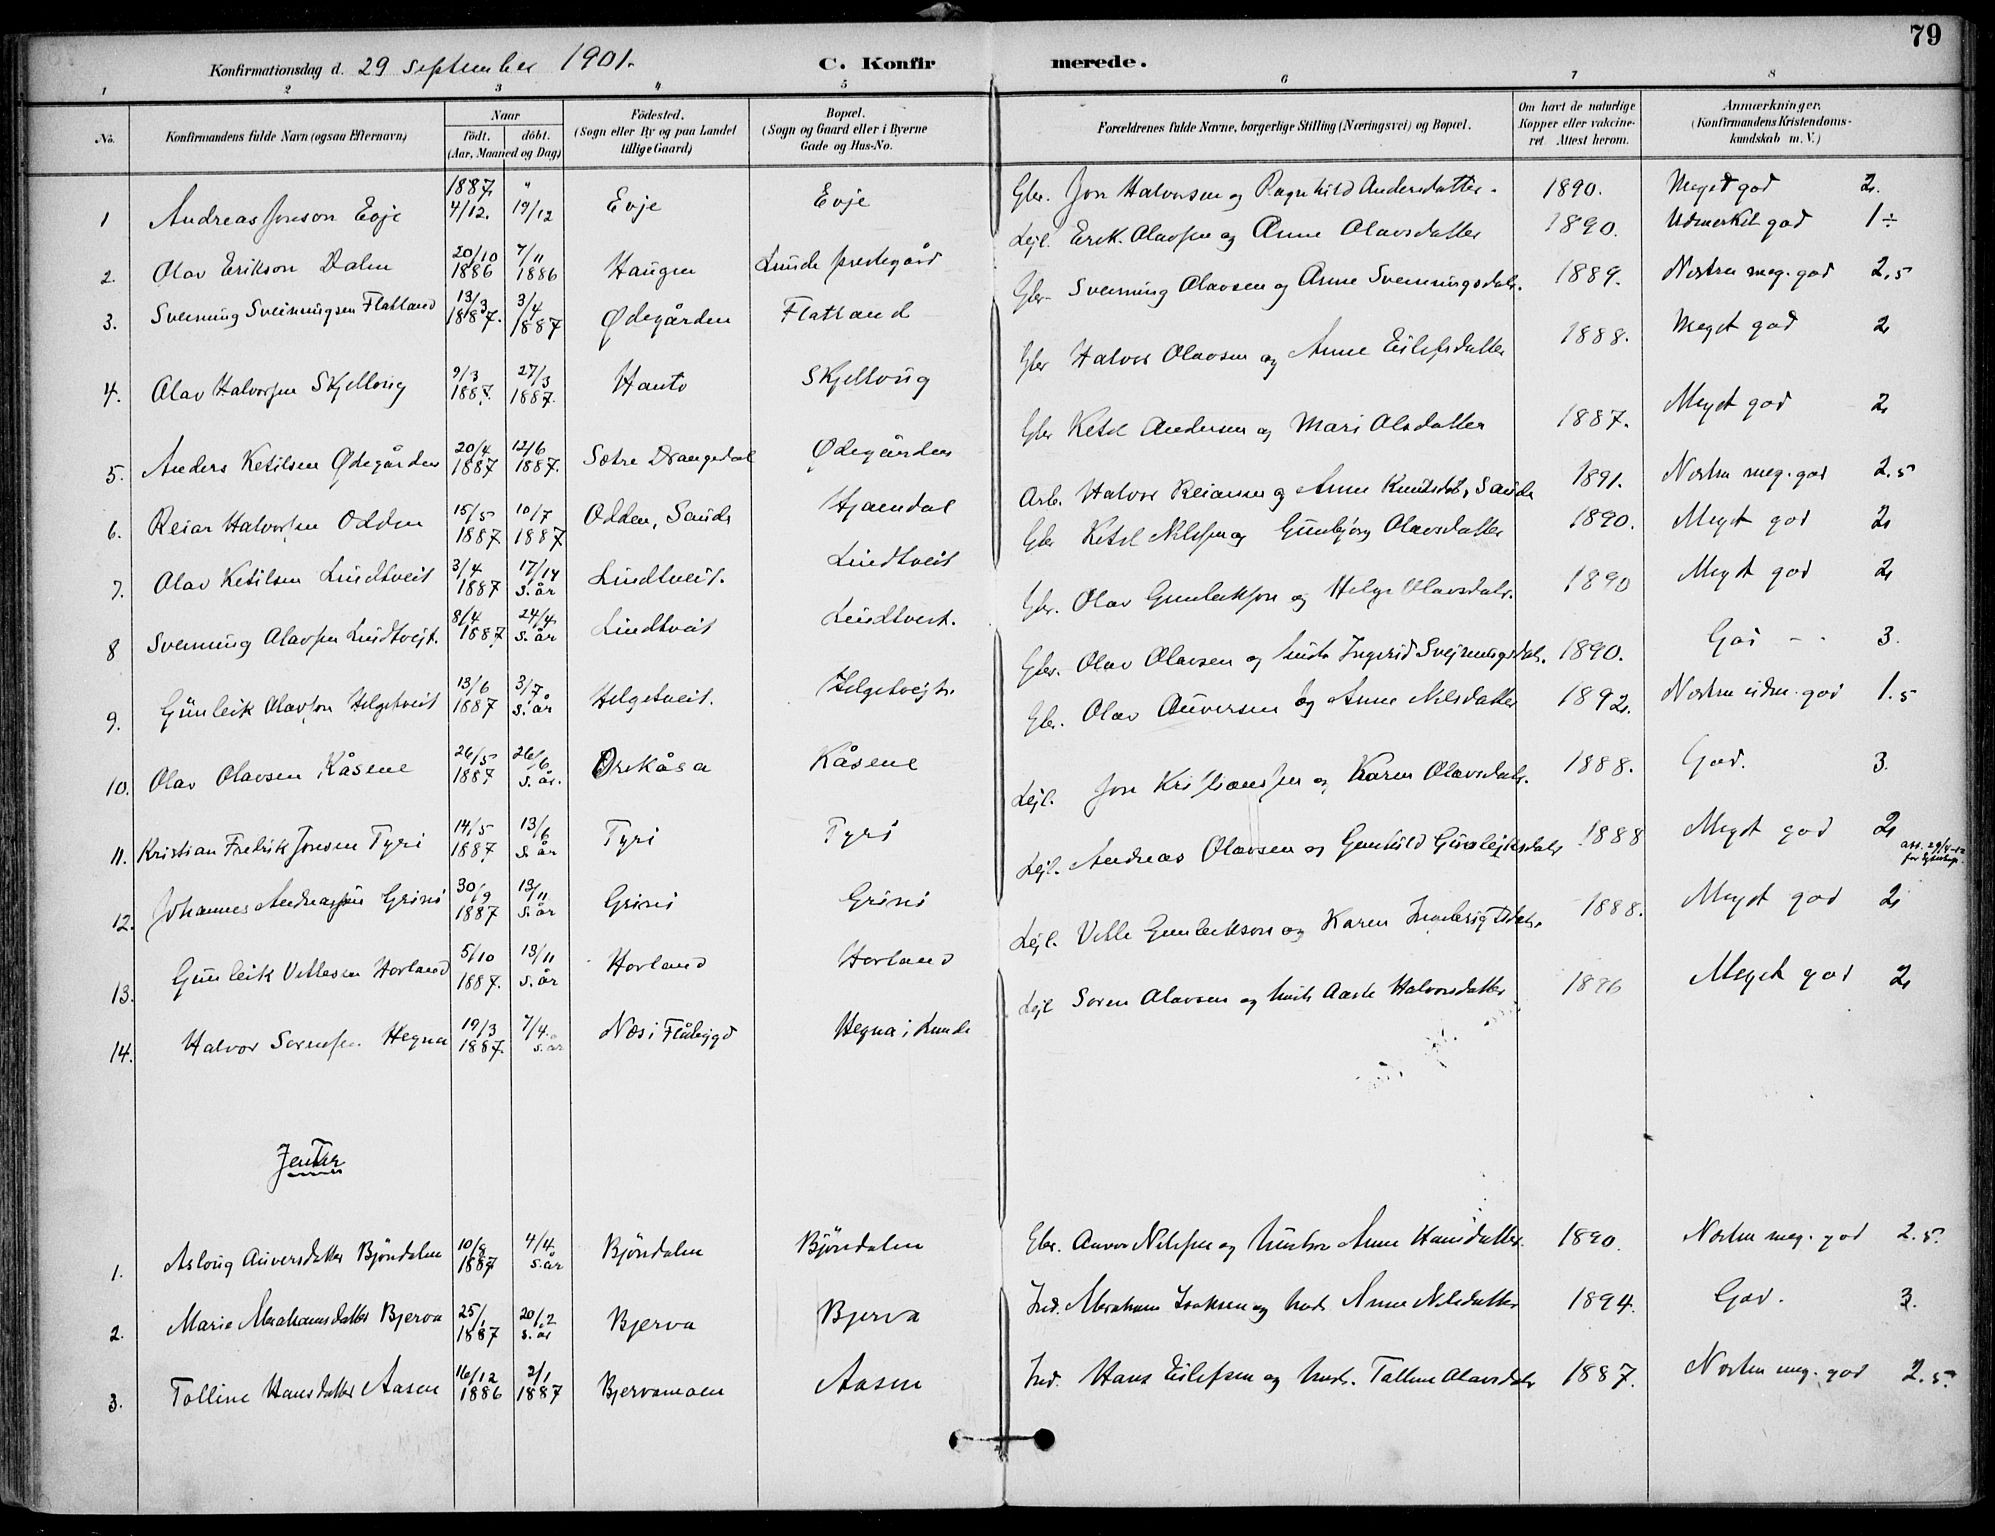 79
Konfirmationsdag d. 29 September 1901. C. Konfir merede.
1 2 3 4 5 6 7 8
No. Konfirmandens fulde Navn (ogsaa Efternavn) Naar födt. döbt. (Aar, Maaned og Dag) Födested. (Sogn eller By og paa Landet tillige Gaard) Bopæl. (Sogn og Gaard eller i Byerne Gade og Hus-No. Forældrenes fulde Navne, borgerlige Stilling (Næringsvei) og Bopæl. Om havt de naturlige Kopper eller vakcineret Attest herom. Anmærkninger. (Konfirmandens Kristendomskundskab m. V.)
1 Andreas Jonson Evje 1887. 4/12. " 19/12 Evje Evje Gbr. Jon Halvorsen og Ragnhild Andersdatter. 1890. Meget god 2.
2. Olav Erikson Dalen 20/10 1886 7/11 1886 Haugen Lunde prestegård Lejl. Erik Olavsen og Anne Olavsdatter 1890. Udmerket god 1÷
3. Svenning Sveinungsen Flatland 13/3 1887. 3/4 1887 Ødegården Flatland Gbr Svenning Olavsen og Anne Svenningsdatr. 1889. Næsten meg. god 2,5
4. Olav Halvorsen Skjellvig 9/3 1887. 27/3 1887. Hauto Skjellvig Gbr Halvor Olavsen og Anne Eilefsdatter 1888. Meget god 2
5. Anders Ketilsen Ødegården 20/4 1887 12/6 1887. Sætre Drangedal Ødegården Gbr Ketil Andersen og Mari Olsdatter 1887. Meget god 2
6. Reiar Halvorsen Odden 15/5 1887 10/7 1887 Odden, Saude Hjændal Arb. Halvor Reiarsen og Anne Knudsdat, Saude 1891. Næsten meg. god 2.5
7. Olav Ketilsen Lindtveit 3/4 1887 17/14 s. år Lindtveit. Lindtveit Gbr Ketil Nilsen og Gunbjörg Olavsdatter 1890. Meget god 2
8 Svenning Olavsen Lindtvejt. 8/4 1887 24/4. s. år Lindtveit Lindtveit. Gbr. Olav Gunleiksson og Helge Olavsdatr. 1890 Meget god 2
9. Günleik Olavson Helgetveit 13/6 1887 3/7 s. år Helgetveit. Helgetvejt. Gbr. Olav Olavsen og hust. Ingerid Svejnungsdatr. 1890. God - - 3.
10. Olav Olavsen Kåsene 26/5 1887 26/6 s. år. Orekåsa Kåsene Gbr. Olav Auversen og Anne Nilsdatter 1892. Næsten udm. god 1.5
11. Kristian Fredrik Jonsen Tyri 14/5 1887 13/6 s. år Tyri Tyri Lejl. Jon Kristiansen og Karen Olavsdatr. 1888. God. 3.
12. Johannes Andreassen Grini 30/9 1887 13/11 s. år Grini Grini Lejl. Andreas Olavsen og Gunhild Günlejksdatr 1888 Meget god 2 att. 29/4-12
13. Günleik Vetlesen Horland 5/10 1887. 13/11 s. år Horland Horland Lejl. Vetle Gunleikson og Karen Ingebrigtsdatr. 1888. Meget god 2
14. Halvor Sørensen Hegna 19/3 1887. 7/4. s. år Næs i Flåbygd Hegna i Lunde Lejl Søren Olavsen og hust. Aaste Halvorsdatter 1896 Meget god 2
Jenter
1. Aslaug Auversdatter Bjöndalen 10/8 1887 4/4. s. år Bjöndalen Bjöndalen Gbr. Auver Nilsen og hustru Anne Hansdatter. 1890. Næsten meg. god 2.5.
2. Marie Abrahamsdatter Bjerva 25/1 1887 20/2 s. år Bjerva Bjerva Ind. Abraham Isaksen og hust. Anne Nilsdatter 1894. God. 3.
3. Tolline Hansdatter Aasen 16/12 1886 2/1 1887 Bjervamoen Aasen Ind. Hans Eilefsen og hust. Talline Olavsdatr 1887. Næsten meg. god 2.5.